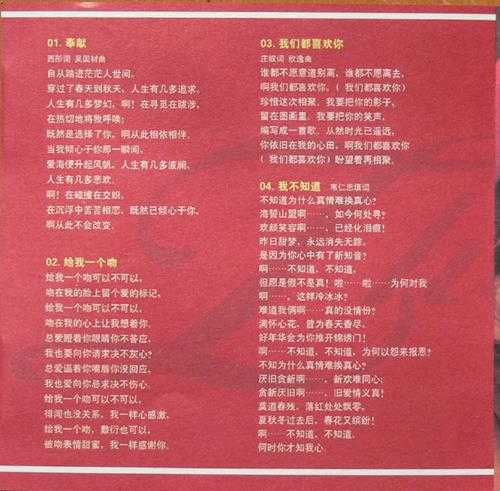 01. 奉献
西彤词 吴国材曲
自从踏进茫茫人世间，
穿过了春天到秋天，人生有几多追求，
人生有几多梦幻，啊！在寻觅在跋涉，
在热切地将我呼唤；
既然是选择了你，啊从此相依相伴，
当我倾心于你那一瞬间，
爱海便升起风帆，人生有几多波澜，
人生有几多悲欢，
啊！在碰撞在交织，
在沉浮中苦苦相恋，既然已倾心于你，
啊从此不会改变。
02. 给我一个吻
给我一个吻可以不可以，
吻在我的脸上留个爱的标记，
给我一个吻可以不可以，
吻在我的心上让我想着你，
总爱瞪着你眼睛你不答应，
我也要向你请求决不灰心？
总爱逼着你嘴唇你没回应，
我也爱向你总求决不伤心，
给我一个吻可以不可以，
徘闻也没关系，我一样心感激，
给我一个吻，敷衍也可以，
被吻表情甜蜜，我一样感谢你。
03. 我们都喜欢你
庄奴词 欣逸曲
谁都不愿意道别离，谁都不愿离去，
啊我们都喜欢你，( 我们都喜欢你)
珍惜这次相聚，我要把你的影子，
留在图画里，我要把你的笑声，
编写成一首歌，从然时光已遥远，
你依旧在我的心田，啊我们都喜欢你
( 我们都喜欢你) 盼望着再相聚。
04. 我不知道
不知道为什么真情难换真心？
海誓山盟啊……，如今何处寻？
欢颜笑容啊……，已经化泪痕！
昨日甜梦，永远消失无踪，
是因为你心中有了新知音？
啊……不知道，不知道，
但愿是假不是真！啦……啦……为何对我
啊……，这样冷冰冰？
难道我俩啊……真的没情份？
满怀心花，曾为春天香尽，
好年华会为你推开锦绣门！
啊……不知道，不知道，为何以怨来报恩？
不知道为什么真情难换真心？
厌旧贪新啊……，新欢难同心；
贪新厌旧啊……，旧爱情义真！
莫道春残，落红处处飘零，
夏秋冬过去后，春花又缤纷！
啊……不知道，不知道，
何时你才知我心。